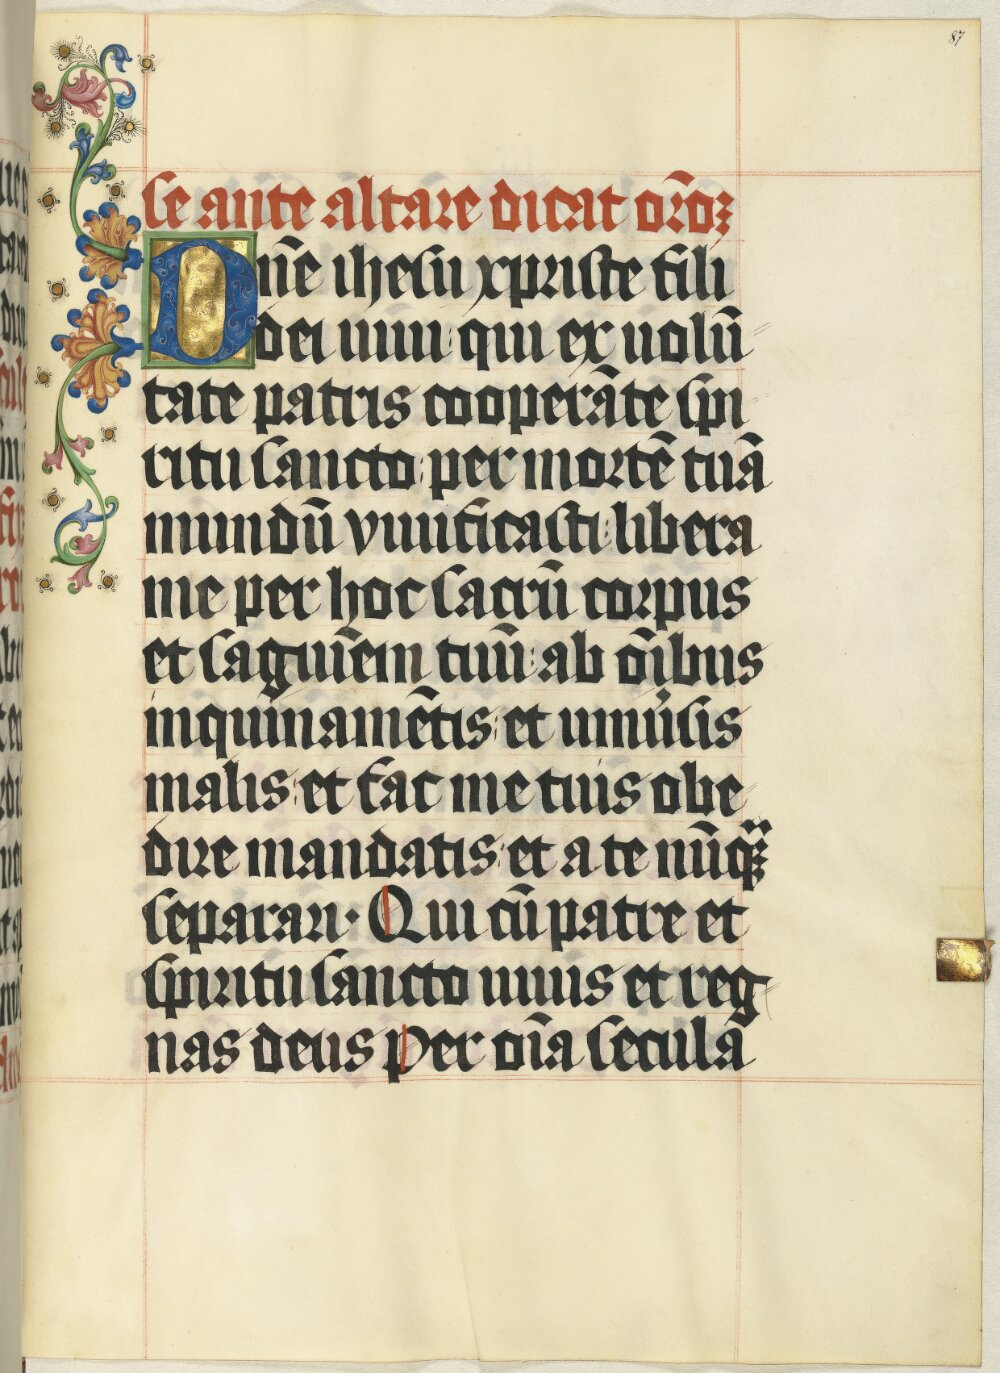 87
se ante altare dicat or̄oꝫ
Dn̄e ihesu xpriste fili
dei uiui: qui ex uolū
tate patris cooperāte spi
ritu sancto: per mortē tuā
mundū viuificasti: libera
me per hoc sacrū corpus
et saguīem tuū: ab oībus
inquinamētis: et uniuīsis
malis: et fac me tuis obe
dire mandatis: et a te nūqꝫ
separari· Qui cū patre et
spiritu sancto uiuis et reg
nas deus Per oīa secula